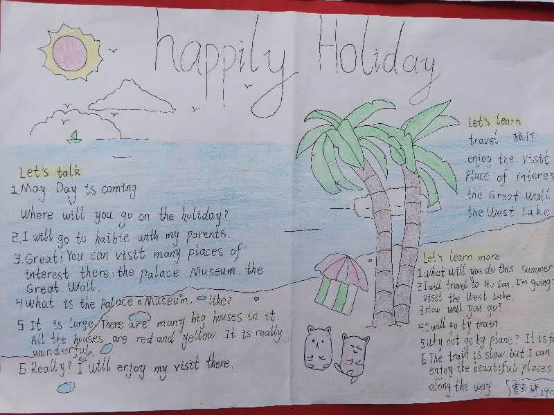 happily Holiday
Let's talk
1. May Day is coming
Where will you go on the holiday?
2. I will go to haibie with my parents.
3. Great! You can visit many places of
interest there. the Palace Museum. the
Great Wall.
4 What is the Palace Museum. like?
5 It is large. There are many big houses in it.
All the houses are red and yellow. It is really
wonderful.
5 Really? I will enjoy my visit there.
Let's learn
travel 旅行
enjoy the visit
Place of interes
the Great Wall
the West Lake
Let's learn more
1. what will you do this summer
2. I will travel to I'm going
visit the West Lake.
3 How will you go?
4. I will go by train
5. Why not go by plane? It is f
6. The train is slow. but I can
enjoy the beautiful places
along the way